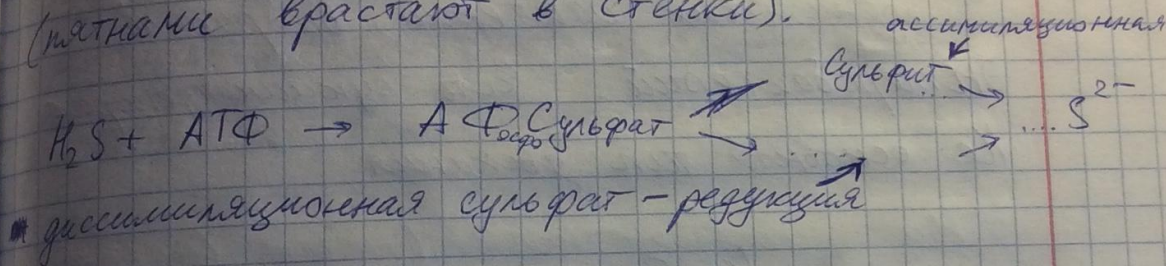 (пятнами врастают в стенки).
ассимиляционная
Сульфит
H₂S + АТФ → АФосфоСульфат → ... → .... S²⁻
диссимиляционная сульфат-редукция